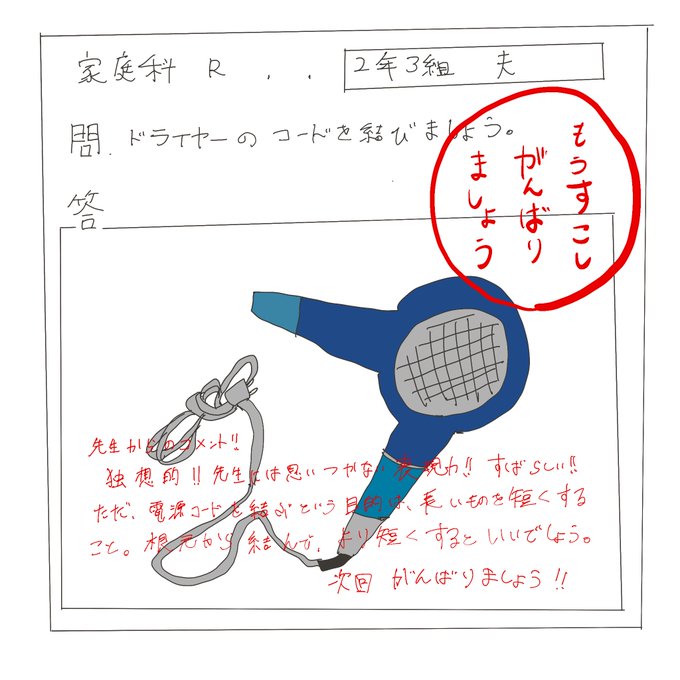 家庭科 R . .
2年3組 夫
問. ドライヤーのコードを結びましょう。
もうすこし
がんばり
ましょう
答
先生からのコメント!!
独想的!!先生には思いつかない表現力!!すばらしい!!
ただ、電源コードを結ぶという目的は、長いものを短くする
こと。根元から結んで、より短くするといいでしょう。
次回 がんばりましょう!!